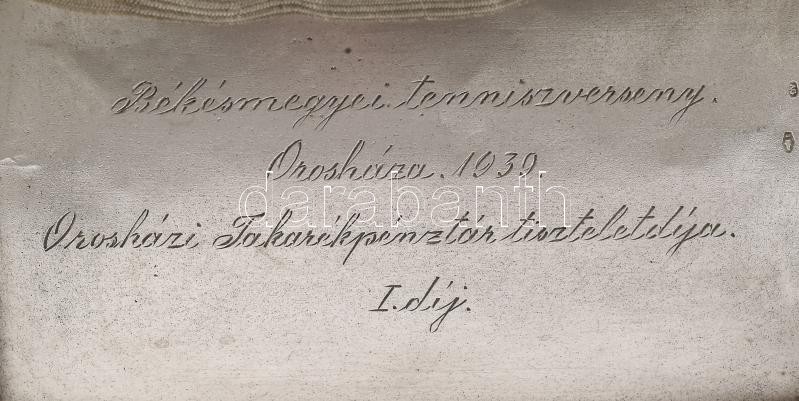 Békésmegyei tenniszverseny.
Orosháza. 1939
darabanth
Orosházi Takarékpénztár tiszteletdíja.
I. díj.